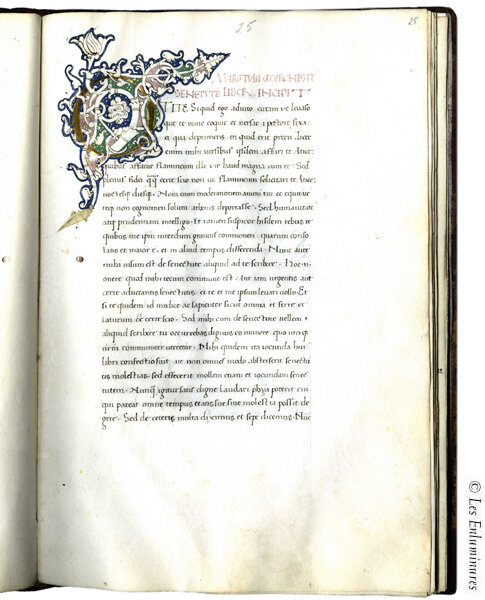 25
25
M ARCI TVLII CICERONIS DE
SENETVTE LIBER INCIPIT
TITE. Si quid ego adiuto curam ve levasso
que te nunc coquit et versat i pectore fixa.
et qua deprimeris en quid erit precii. licet
enim mihi versibus iisdem affari te Atice:
quibus affatur flamineum ille vir haud magna cum re. Sed
plenus fidei certe scio non ut flamineum solicitari te Atice
noctesque diesque. Novi enim moderationem animi tui et equitate
teque non cognomen solum athenis deportasse. Sed humanitate
atque prudentiam intelligo. Et tamen suspicor hisdem rebus te
quibus me ipsum interdum gravius commoveri quarum conso
latio et maior e et in aliud tempus differenda. Nunc aute
mihi visum est de senectute aliquid ad te scribere. Hoc
onere quod mihi tecum commune est. aut iam urgentis aut
certe adventantis senectutis. et te et me ipsum levari volo. Et
si te quidem id modice ac sapienter sicut omnia et ferre et
laturum et certe scio. Sed mihi cum de senectute vellem
aliquid scribere tu occurrebas dignus eo munere. quo uterque
nostrum communiter uteretur. Mihi quidem ita iocunda huius
libri confectio fuit ut non omnes modo absterserit senectu
tis molestias. sed effecerit mollem etiam et iocundam senec
tutem. Nunquam igitur satis digne laudari phya poterit cui
qui pareat omne tempus etatis sue sine molestia possit de
gere. Sed de ceteris multa diximus et sepe dicemus. Nuc
© Les Enluminures